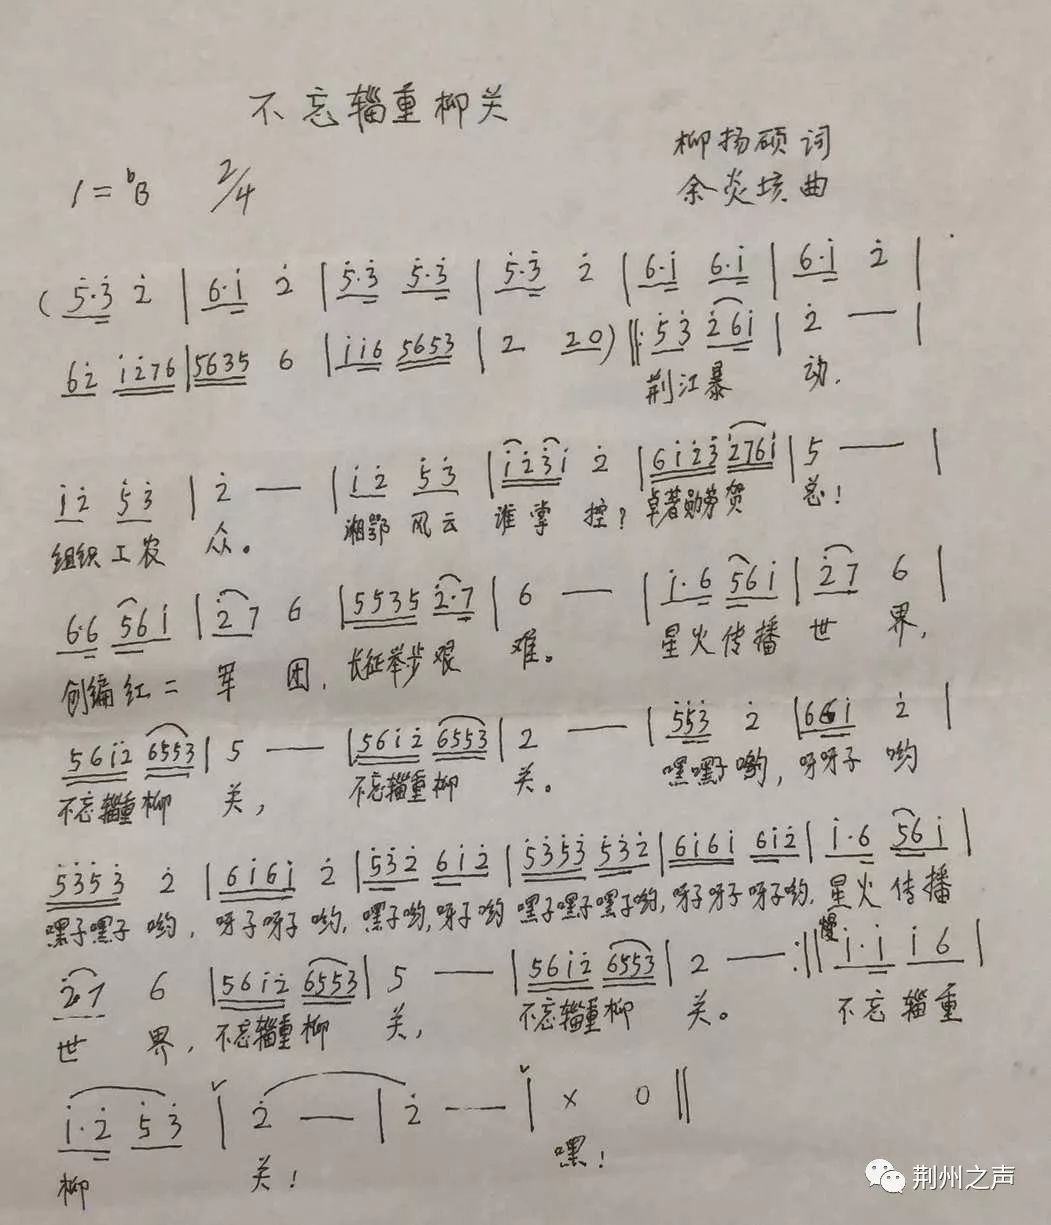 不忘辎重柳关
柳扬硕 词
1=ᵇB 2/4
余炎垓 曲
( 5̇·3̇ 2̇ | 6·1̇ 2̇ | 5̇·3̇ 5̇·3̇ | 5̇·3̇ 2̇ | 6·1̇ 6·1̇ | 6·1̇ 2̇ |
62̇ 1̇2̇76 | 5635 6 | 1̇1̇6 5653 | 2 20 ) ‖: 5̇3̇ 2̇61̇ | 2̇ — |
荆江暴 动.
1̇2̇ 5̇3̇ | 2̇ — | 1̇2̇ 5̇3̇ | 1̇2̇3̇1̇ 2̇ | 61̇2̇3̇ 2̇761̇ | 5 — |
组织工农 众。 湘鄂 风云 谁掌 控? 卓著勋劳贺 总!
6·6 561̇ | 2̇7 6 | 5535 2̇·7 | 6 — | 1̇·6 561̇ | 2̇7 6 |
创编红二 军 团, 长征举步艰 难。 星火传播 世 界,
561̇2̇ 6553 | 5 — | 561̇2̇ 6553 | 2 — | 5̇5̇3̇ 2̇ | 661̇ 2̇ |
不忘辎重柳 关, 不忘辎重柳 关。 嘿嘿子哟, 呀呀子 哟
5̇3̇5̇3̇ 2̇ | 61̇61̇ 2̇ | 5̇3̇2̇ 61̇2̇ | 5̇3̇5̇3̇ 5̇3̇2̇ | 61̇61̇ 61̇2̇ | 1̇·6 561̇ |
嘿子嘿子 哟, 呀子呀子 哟, 嘿子哟, 呀子哟 嘿子嘿子嘿子哟, 呀子呀子呀子哟, 星火 传播
慢
2̇7 6 | 561̇2̇ 6553 | 5 — | 561̇2̇ 6553 | 2 — :‖ 1̇·1̇ 1̇6 |
世 界, 不忘辎重 柳 关, 不忘辎重柳 关。 不忘 辎重
1̇·2̇ 5̇3̇ | 2̇ — | 2̇ — | × 0 ‖
柳 关! 嘿!
荆州之声